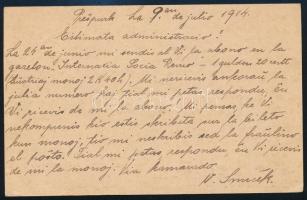 Prešpurk la 9.an de julio 1914.
Estimata administracio!
La 24an de junio mi sendis al Vi la abono en la
gazeton! Internacia Socia Revuo - 1 gulden 20 cent
(austriaj monoj 2 K 40 h). Mi nericevis ankoraŭ la
julia numero kaj tial mi petas respondu, ĉu
Vi ricevis de mi la abono! Mi pensas, ke Vi
nekomprenis kio estis skribata sur la bileto
kun monoj, tiu mi neskribis sed la fraŭlino
el poŝto. Tial mi petas respondu ĉu Vi ricevis
de mi la monoj. Via kamarado